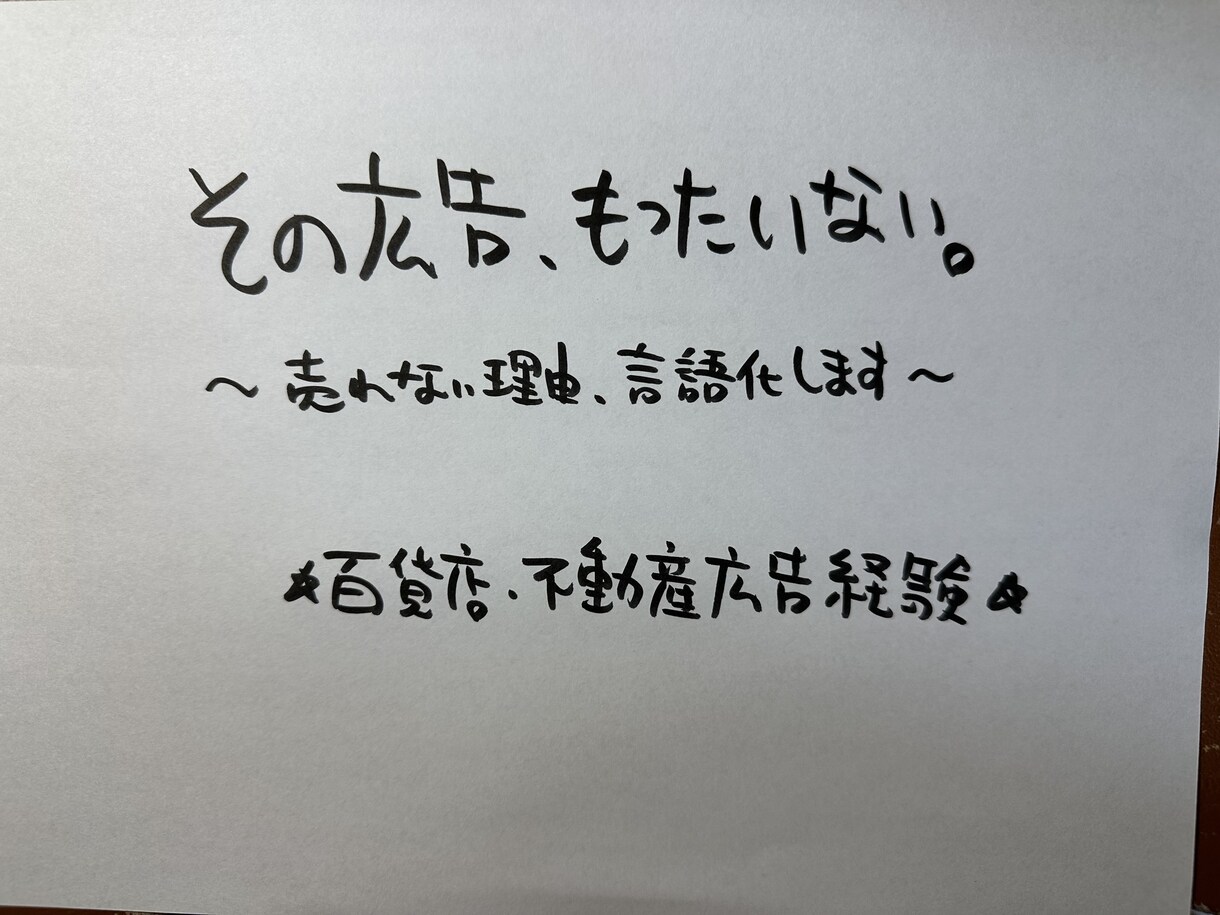 その広告、もったいない。
～売れない理由、言語化します～
★百貨店・不動産広告経験★